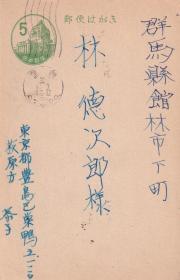 郵便はがき
5
群馬縣館林市下町
林德次郎様
東京都豊島区巣鴨
萩原方